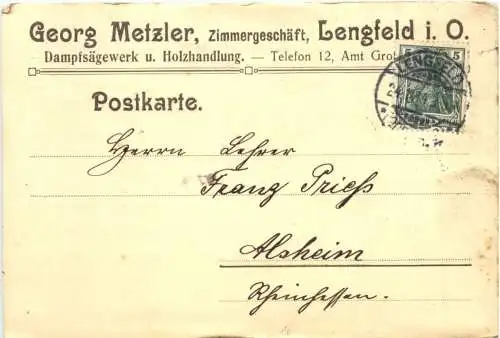 Georg Metzler, Zimmergeschäft, Lengfeld i. O.
Dampfsägewerk u. Holzhandlung. — Telefon 12, Amt
5
LENGFELD
Postkarte.
Herrn Lehrer
Franz Priess
Alsheim
Rheinhessen.